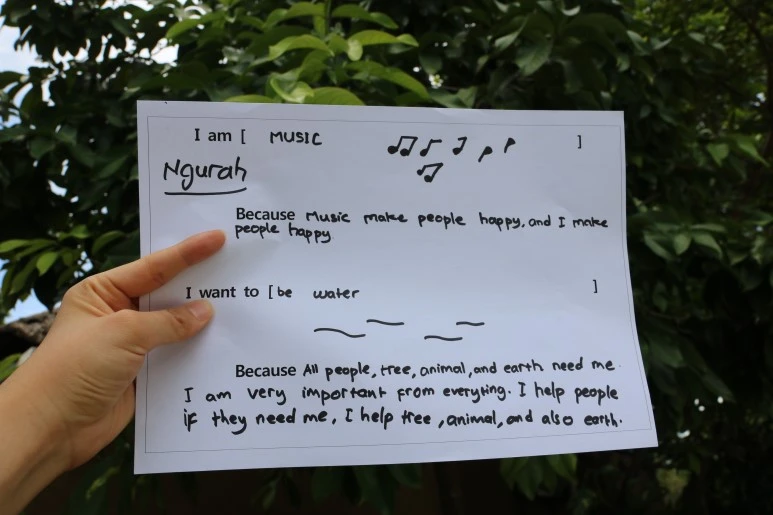 I am [ MUSIC ]
Ngurah
Because Music make people happy, and I make
people happy
I want to [ be water ]
Because All people, tree, animal, and earth need me.
I am very important from everyting. I help people
if they need me, I help tree, animal, and also earth.